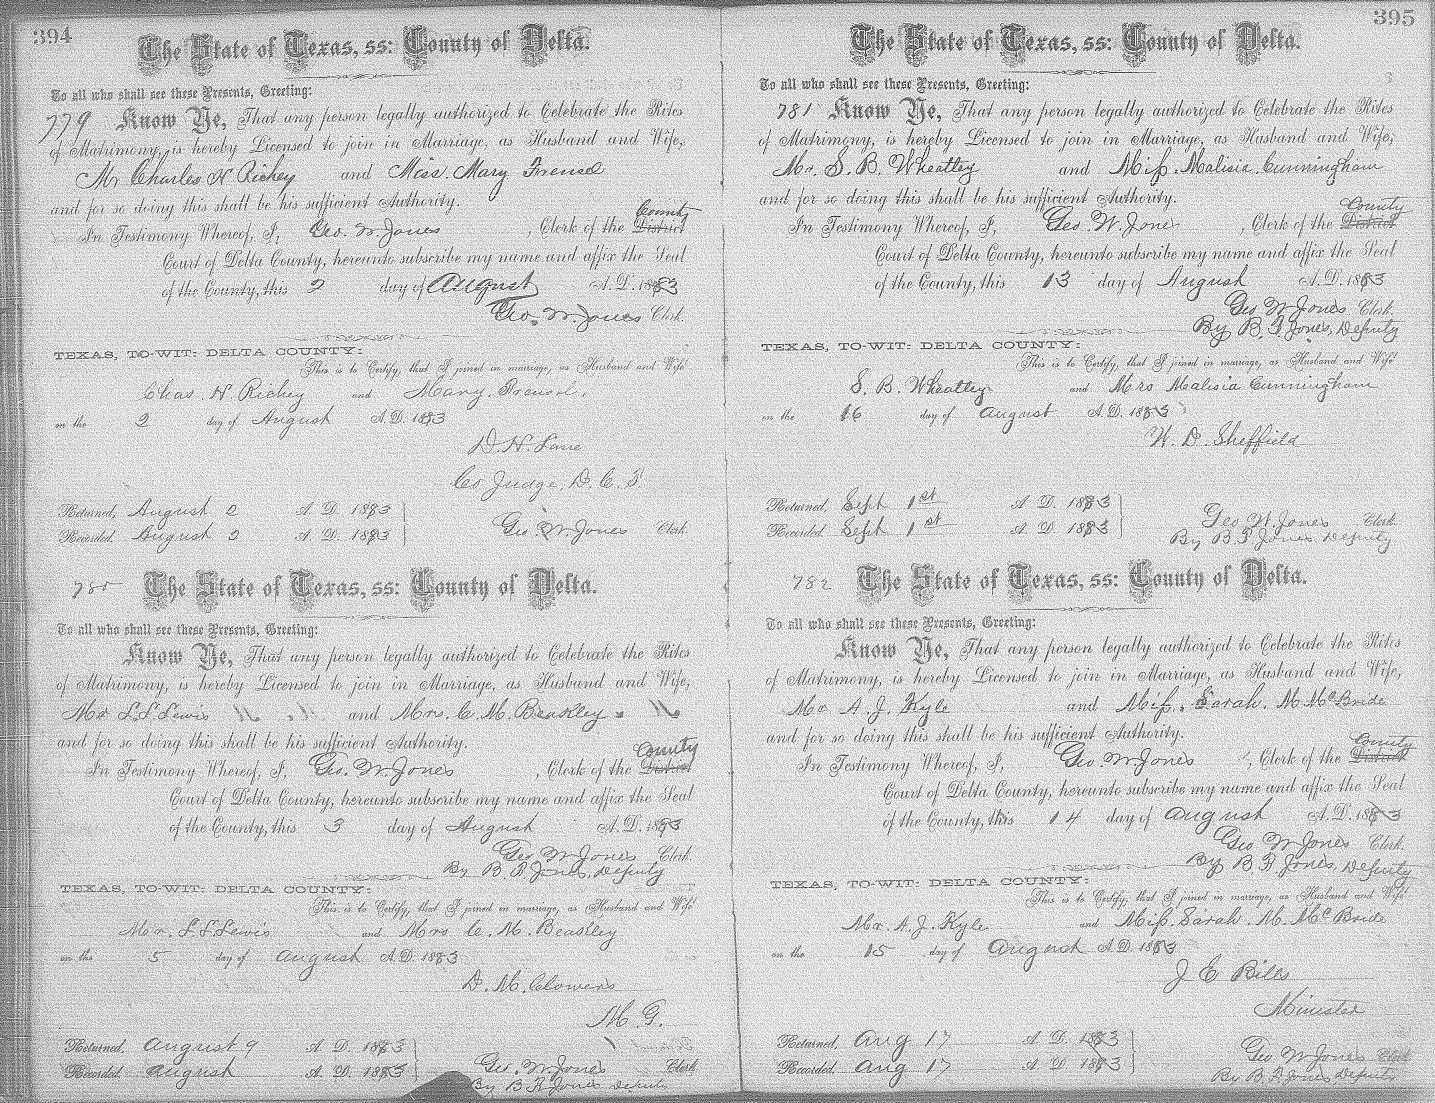 394
The State of Texas, ss: County of Delta.
To all who shall see these Presents, Greeting:
779 Know Ye, That any person legally authorized to Celebrate the Rites
of Matrimony, is hereby Licensed to join in Marriage, as Husband and Wife,
Mr Charles N Richey and Miss. Mary Frensel
and for so doing this shall be his sufficient Authority.
County
In Testimony Whereof, I, Geo. W. Jones , Clerk of the District
Court of Delta County, hereunto subscribe my name and affix the Seal
of the County, this 2 day of August A. D. 1883
Geo. W. Jones Clerk.
TEXAS, TO-WIT: DELTA COUNTY:
This is to Certify, that I joined in marriage, as Husband and Wife
Chas N Richey and Mary Frensel.
on the 2 day of August A. D. 1883
D. H. Lane
Co Judge. D. C. T.
Returned, August 2 A. D. 1883
Recorded, August 2 A. D. 1883
Geo. W. Jones Clerk
780 The State of Texas, ss: County of Delta.
To all who shall see these Presents, Greeting:
Know Ye, That any person legally authorized to Celebrate the Rites
of Matrimony, is hereby Licensed to join in Marriage, as Husband and Wife,
Mr L. S. Lewis and Mrs. C. M. Beasley
and for so doing this shall be his sufficient Authority.
County
In Testimony Whereof, I, Geo. W. Jones , Clerk of the District
Court of Delta County, hereunto subscribe my name and affix the Seal
of the County, this 3 day of August A. D. 1883
Geo W Jones Clerk.
By B. F. Jones, Deputy
TEXAS, TO-WIT: DELTA COUNTY:
This is to Certify, that I joined in marriage, as Husband and Wife
Mr. L. S. Lewis and Mrs C. M. Beasley
on the 5 day of August A. D. 1883
D. M. Clowers
M. G.
Returned, August 9 A. D. 1883
Recorded, August A. D. 1883
Geo. W. Jones Clerk
By B F Jones Deputy
395
The State of Texas, ss: County of Delta.
To all who shall see these Presents, Greeting:
781 Know Ye, That any person legally authorized to Celebrate the Rites
of Matrimony, is hereby Licensed to join in Marriage, as Husband and Wife,
Mr. S. B. Wheatley and Miss. Malisia Cunningham
and for so doing this shall be his sufficient Authority.
County
In Testimony Whereof, I, Geo. W. Jones , Clerk of the District
Court of Delta County, hereunto subscribe my name and affix the Seal
of the County, this 13 day of August A. D. 1883
Geo W Jones Clerk.
By B. F. Jones, Deputy
TEXAS, TO-WIT: DELTA COUNTY:
This is to Certify, that I joined in marriage, as Husband and Wife
S. B. Wheatley and Mrs Malisia Cunningham
on the 16 day of August A. D. 1883
W. D. Sheffield
Returned, Sept 1st A. D. 1883
Recorded, Sept 1st A. D. 1883
Geo W. Jones Clerk
By B F Jones Deputy
782 The State of Texas, ss: County of Delta.
To all who shall see these Presents, Greeting:
Know Ye, That any person legally authorized to Celebrate the Rites
of Matrimony, is hereby Licensed to join in Marriage, as Husband and Wife,
Mr A. J. Kyle and Miss. Sarah. M. McBride
and for so doing this shall be his sufficient Authority.
County
In Testimony Whereof, I, Geo. W. Jones , Clerk of the District
Court of Delta County, hereunto subscribe my name and affix the Seal
of the County, this 14 day of August A. D. 1883
Geo W Jones Clerk.
By B. F. Jones, Deputy
TEXAS, TO-WIT: DELTA COUNTY:
This is to Certify, that I joined in marriage, as Husband and Wife
Mr. A. J. Kyle and Miss. Sarah. M. McBride
on the 15 day of August A. D. 1883
J E Bills
Minister
Returned, Aug 17 A. D. 1883
Recorded, Aug 17 A. D. 1883
Geo W Jones Clerk
By B. F. Jones Deputy